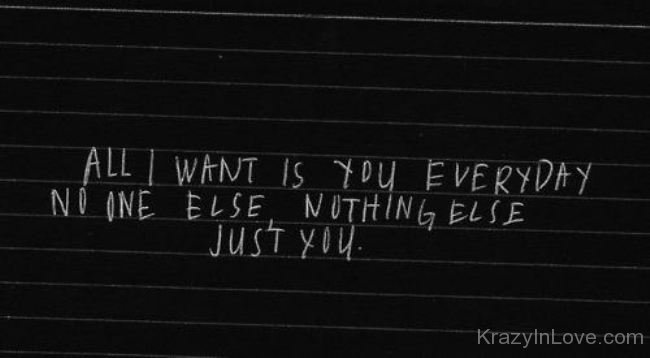 ALL I WANT IS YOU EVERYDAY
NO ONE ELSE, NOTHING ELSE
JUST YOU.
KrazyInLove.com